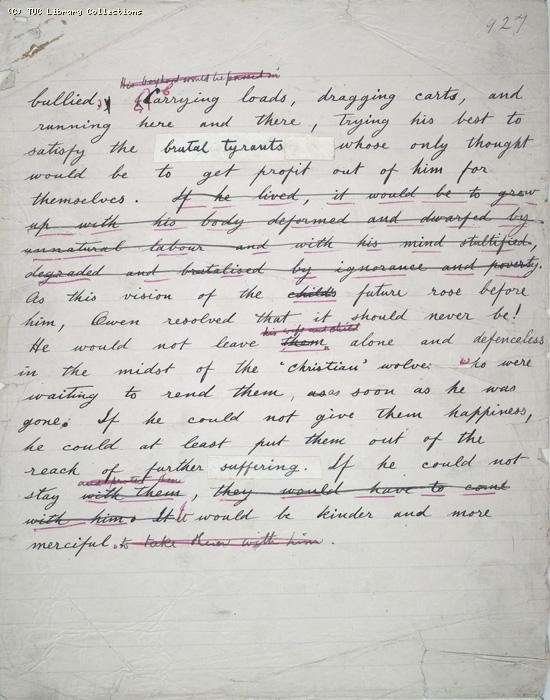 (C) TUC Library Collections
927
His boyhood would be passed in
bullied, Carrying loads, dragging carts, and
running here and there, trying his best to
satisfy the brutal tyrants whose only thought
would be to get profit out of him for
themselves. If he lived, it would be to grow
up with his body deformed and dwarfed by
unnatural labour and with his mind stultified,
degraded and brutalised by ignorance and poverty.
As this vision of the childs future rose before
him, Owen resolved that it should never be!
his wife and child
He would not leave them alone and defenceless
in the midst of the "Christian" wolves who were
waiting to rend them, as as soon as he was
gone. If he could not give them happiness,
he could at least put them out of the
reach of further suffering. If he could not
and protect them
stay with them, they would have to come
with him. It would be kinder and more
merciful to take them with him.